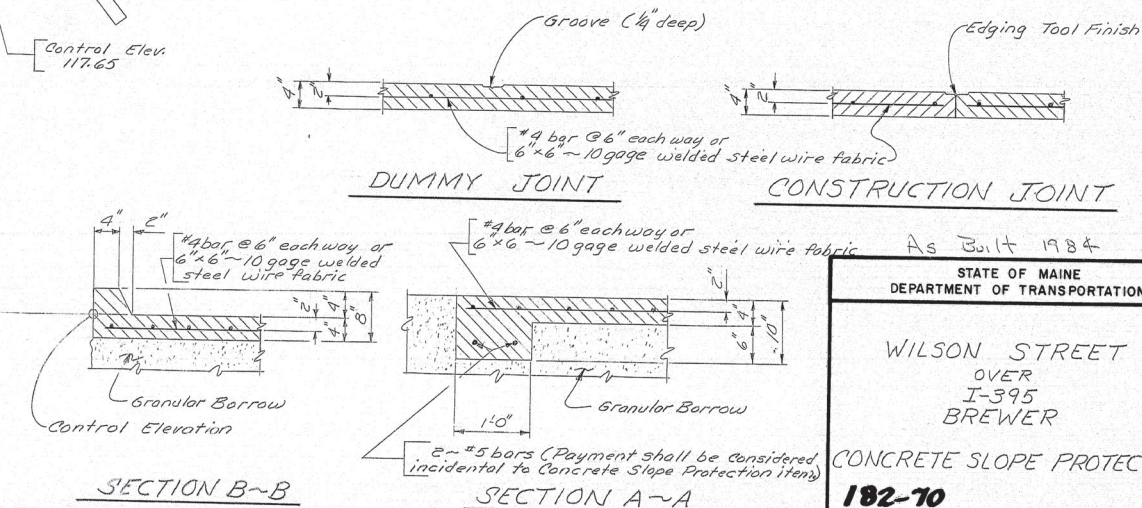 Control Elev.
117.65
Groove (1/4" deep)
4"
2"
#4 bar @ 6" each way or
6"x6" ~ 10 gage welded steel wire fabric
DUMMY JOINT
Edging Tool Finish
4"
2"
CONSTRUCTION JOINT
4" 2"
#4 bar @ 6" each way or
6"x6" ~ 10 gage welded
steel wire fabric
2"
4"
4"
8"
Granular Borrow
Control Elevation
SECTION B~B
#4 bar @ 6" each way or
6"x6 ~ 10 gage welded steel wire fabric
2"
4"
6"
10"
1'-0"
Granular Borrow
2~#5 bars (Payment shall be considered
incidental to Concrete Slope Protection item)
SECTION A~A
As Built 1984
STATE OF MAINE
DEPARTMENT OF TRANSPORTATION
WILSON STREET
OVER
I-395
BREWER
CONCRETE SLOPE PROTEC
182-70